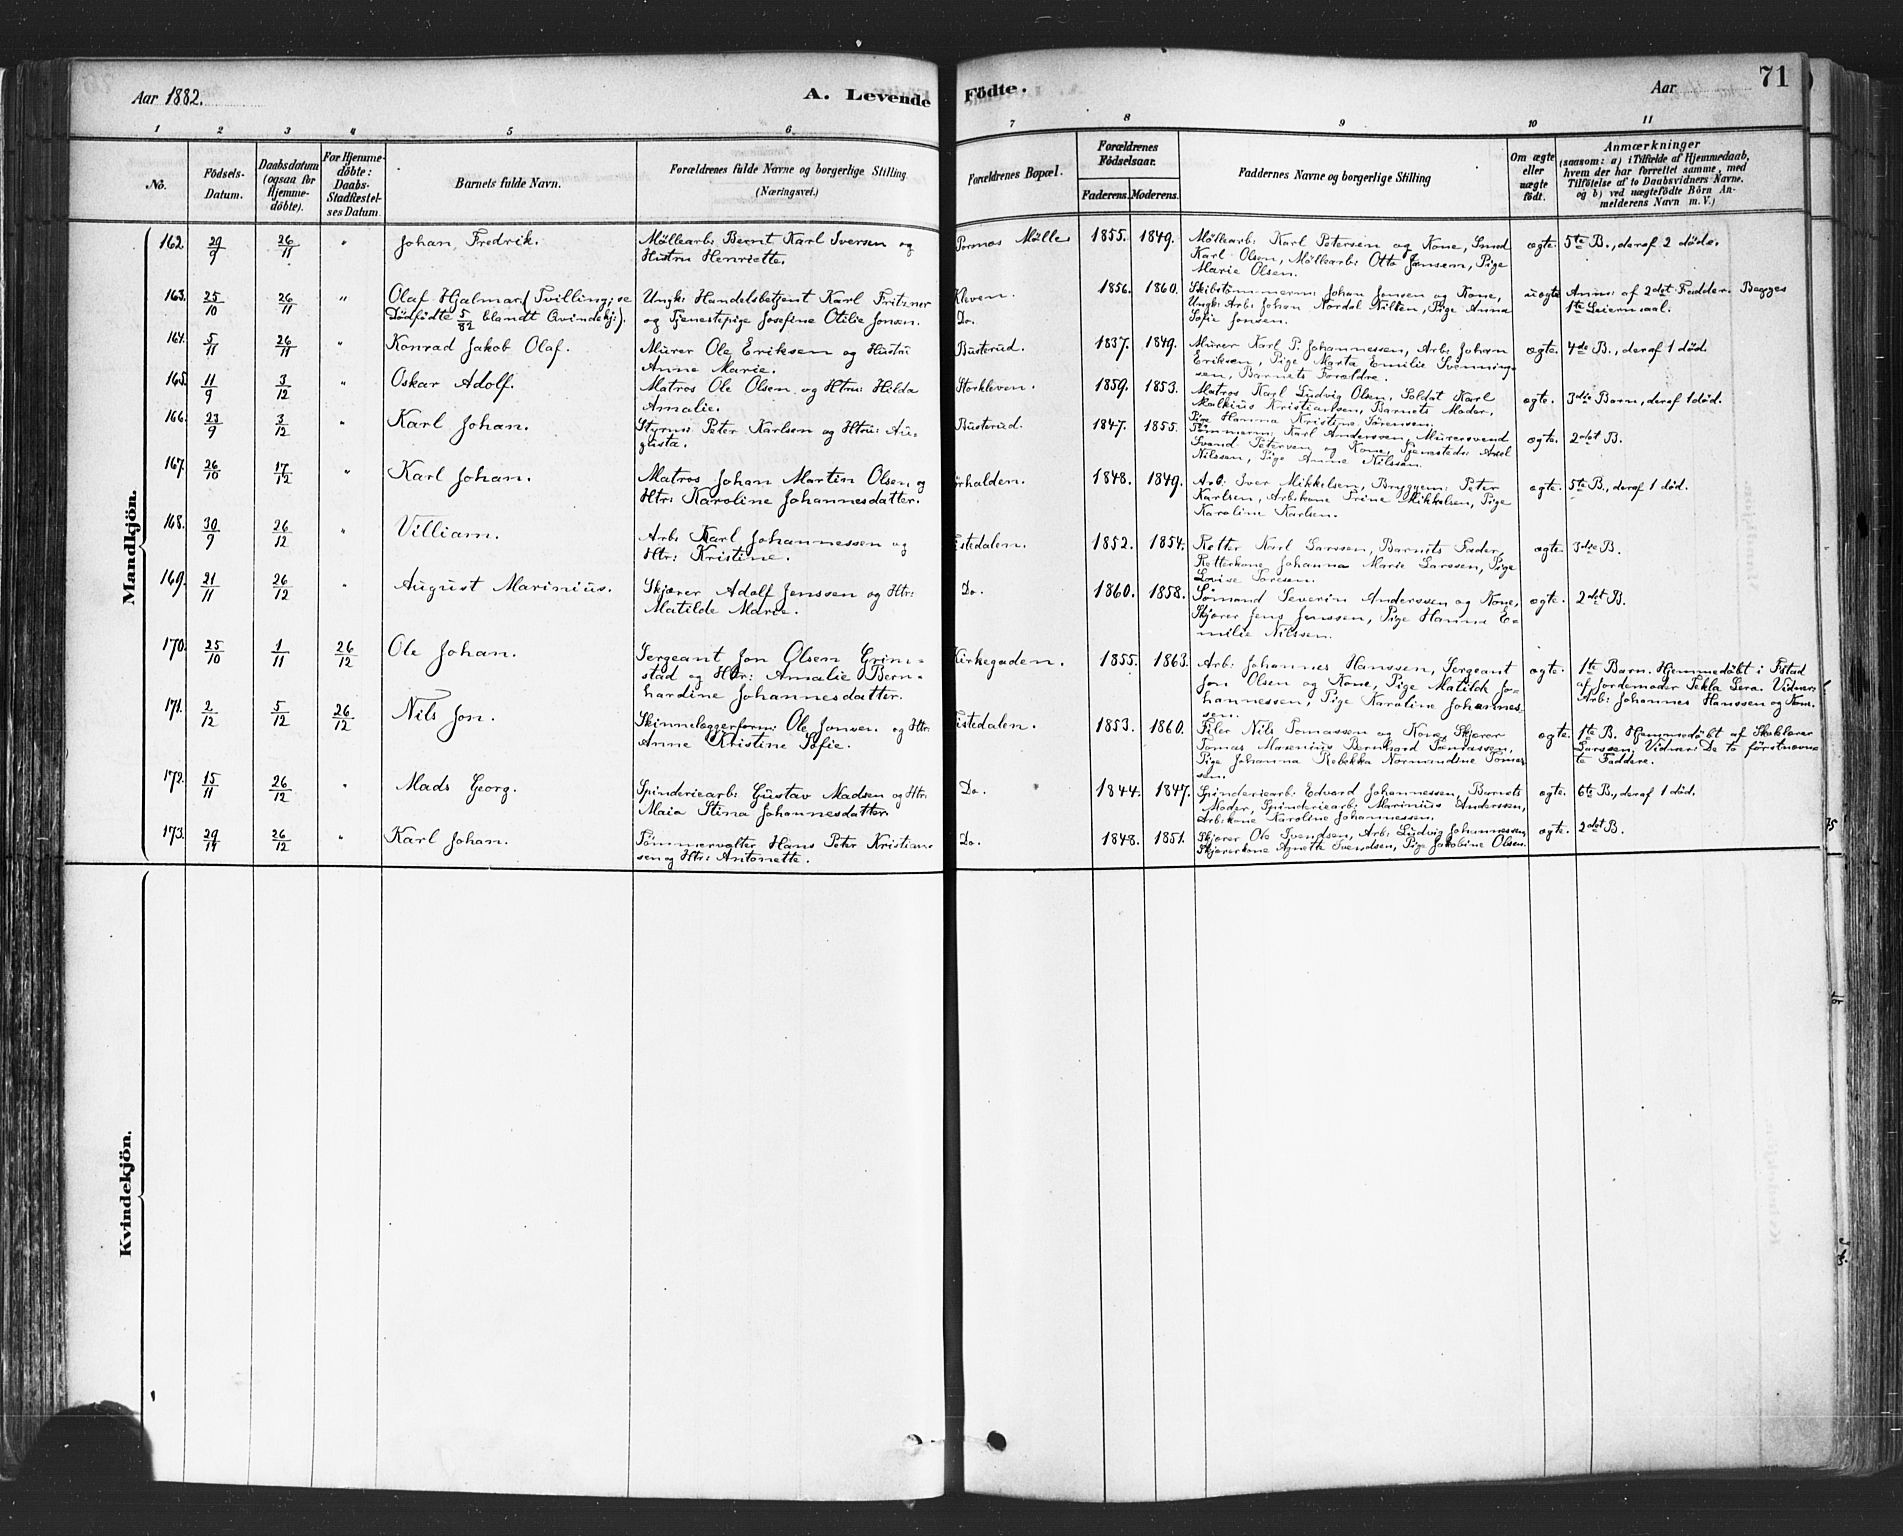 Aar 1882.
A. Levende
Födte.
Aar
71
1
2
3
4
5
6
7
8
9
10
11
No.
Födsels-
Datum.
Daabsdatum
(ogsaa for
Hjemme-
döbte).
For Hjemme-
döbte:
Daabs-
Stadfæstel-
ses Datum.
Barnets fulde Navn.
Forældrenes fulde Navne og borgerlige Stilling
(Næringsvei.)
Forældrenes Bopæl.
Forældrenes
Födselsaar.
Faderens. Moderens.
Faddernes Navne og borgerlige Stilling
Om ægte
eller
uægte
födt.
Anmærkninger
(saasom: a) i Tilfælde af Hjemmedaab,
hvem der har forrettet samme, med
Tilföielse af to Daabsvidners Navne.
og b) ved uægtefödte Börn An-
melderens Navn m. V.)
Mandkjön.
162. 29/9 26/11 " Johan Fredrik. Møllearb: Bernt Karl Iversen og
Hustru Henriette.
Mølle 1855. 1849. Møllearb: Karl Petersen og Kone, Smed
Karl Olsen, Møllearb: Otto Jensen, Pige
Marie Olsen.
ægte. 5te B., deraf 2 døde.
163. 25/10 26/11 " Olaf Hjalmar (Tvilling; se
Dødfødte 5/82 blandt Qvindekj:). Ungk: Handelsbetjent Karl Fritzner
og Tjenestepige Josefine Otilie Jonsen.
Kleven.
Do.
1856. 1860. Skibstømmerm: Johan Jonsen og Kone,
Ungk: Arb: Johan Nordal Nilsen, Pige Anna
Sofie Jonsen.
uægte Anm: af 2det Fadder. Begges
1te Leiermaal.
164. 5/11 26/11 " Konrad Jakob Olaf. Murer Ole Eriksen og Hustru
Anne Marie.
Busterud. 1837. 1849. Murer Karl P. Johannessen, Arb: Johan
Eriksen, Pige Marta Emilie Svenning-
sen, Barnets Forældre.
ægte. 4de B., deraf 1 død.
165. 11/9 3/12 " Oskar Adolf. Matros Ole Olsen og Htru: Hilda
Amalie.
Storkleven. 1859. 1853. Matros Karl Ludvig Olsen, Soldat Karl
Malkius Kristiansen, Barnets Moder,
Pige Hanna Kristine Sørensen.
ægte. 3die Barn, deraf 1 død.
166. 23/9 3/12 " Karl Johan. Styrm: Peter Karlsen og Htru: Au-
gusta.
Busterud. 1847. 1855. Tømmerm: Karl Andersen, Murersvend
Svend Petersen og Kone, Tjenestedr: Axel
Nilssen, Pige Anne Nilssen.
ægte. 2det B.
167. 26/10 17/12 " Karl Johan. Matros Johan Martin Olsen og
Htr: Karoline Johannesdatter.
1848. 1849. Arb: Iver Mikkelsen, Bryggem: Peter
Karlsen, Arbkone Trine Mikkelsen, Pige
Karoline Karlsen.
ægte. 5te B., deraf 1 død.
168. 30/9 26/12 " Villiam. Arb: Karl Johannessen og
Htr: Kristine.
istedalen. 1852. 1854. Retter Karl Larssen, Barnets Fader,
Retterkone Johanna Marie Larssen, Pige
Lovise Toresen.
ægte 3die B.
169. 21/11 26/12 " August Marinius. Skjærer Adolf Jenssen og Htr:
Matilde Marie.
Do. 1860. 1858. Sømand Severin Anderssen og Kone,
Skjærer Jens Jenssen, Pige Hanna E-
milie Nilssen.
ægte. 2det B.
170. 25/10 1/11 26/12 Ole Johan. Sergeant Jon Olsen Grim-
stad og Htr: Amalie Bern-
hardine Johannesdatter.
Kirkegaden. 1855. 1863. Arb: Johannes Hanssen, Sergeant
Jon Olsen og Kone, Pige Matilde Jo-
hannessen, Pige Karoline Johannes-
sen.
ægte. 1te Barn. Hjemmedøbt i F:stad
af Jordemoder Tekla Lera. Vidner:
Arb: Johannes Hanssen og Kone.
171. 2/12 5/12 26/12 Nils Jon. Skinnelæggerform: Ole Jonsen og Htr:
Anne Kristine Sofie.
Tistedalen. 1853. 1860. Filer Nils Tomassen og Kone, Skjærer
Tomas Marenius Bernhard Tomassen,
Pige Johanna Rebekka Normandine Tomas-
sen.
ægte. 1te B. Hjemmedøbt af Skolelærer
Larssen; Vidner: De to førstnævn-
te Faddere.
172. 15/11 26/12 " Mads Georg. Spinderiearb: Gustav Madsen og Htr:
Maia Stina Johannesdatter.
Do. 1844. 1847. Spinderiearb: Edvard Johannessen, Barnets
Moder, Spinderiearb: Marinius Anderssen,
Arbekone Karoline Johannessen.
ægte. 6te B., deraf 1 død.
173. 29/11 26/12 " Karl Johan. Tømmervalter Hans Peter Kristian-
sen og Htr: Antonette.
Do. 1848. 1851. Skjærer Ole Svendsen, Arb: Ludvig Johannessen,
Skjærerkone Agnette Svendsen, Pige Jakobine Olsen.
ægte. 2det B.
Kvindekjön.